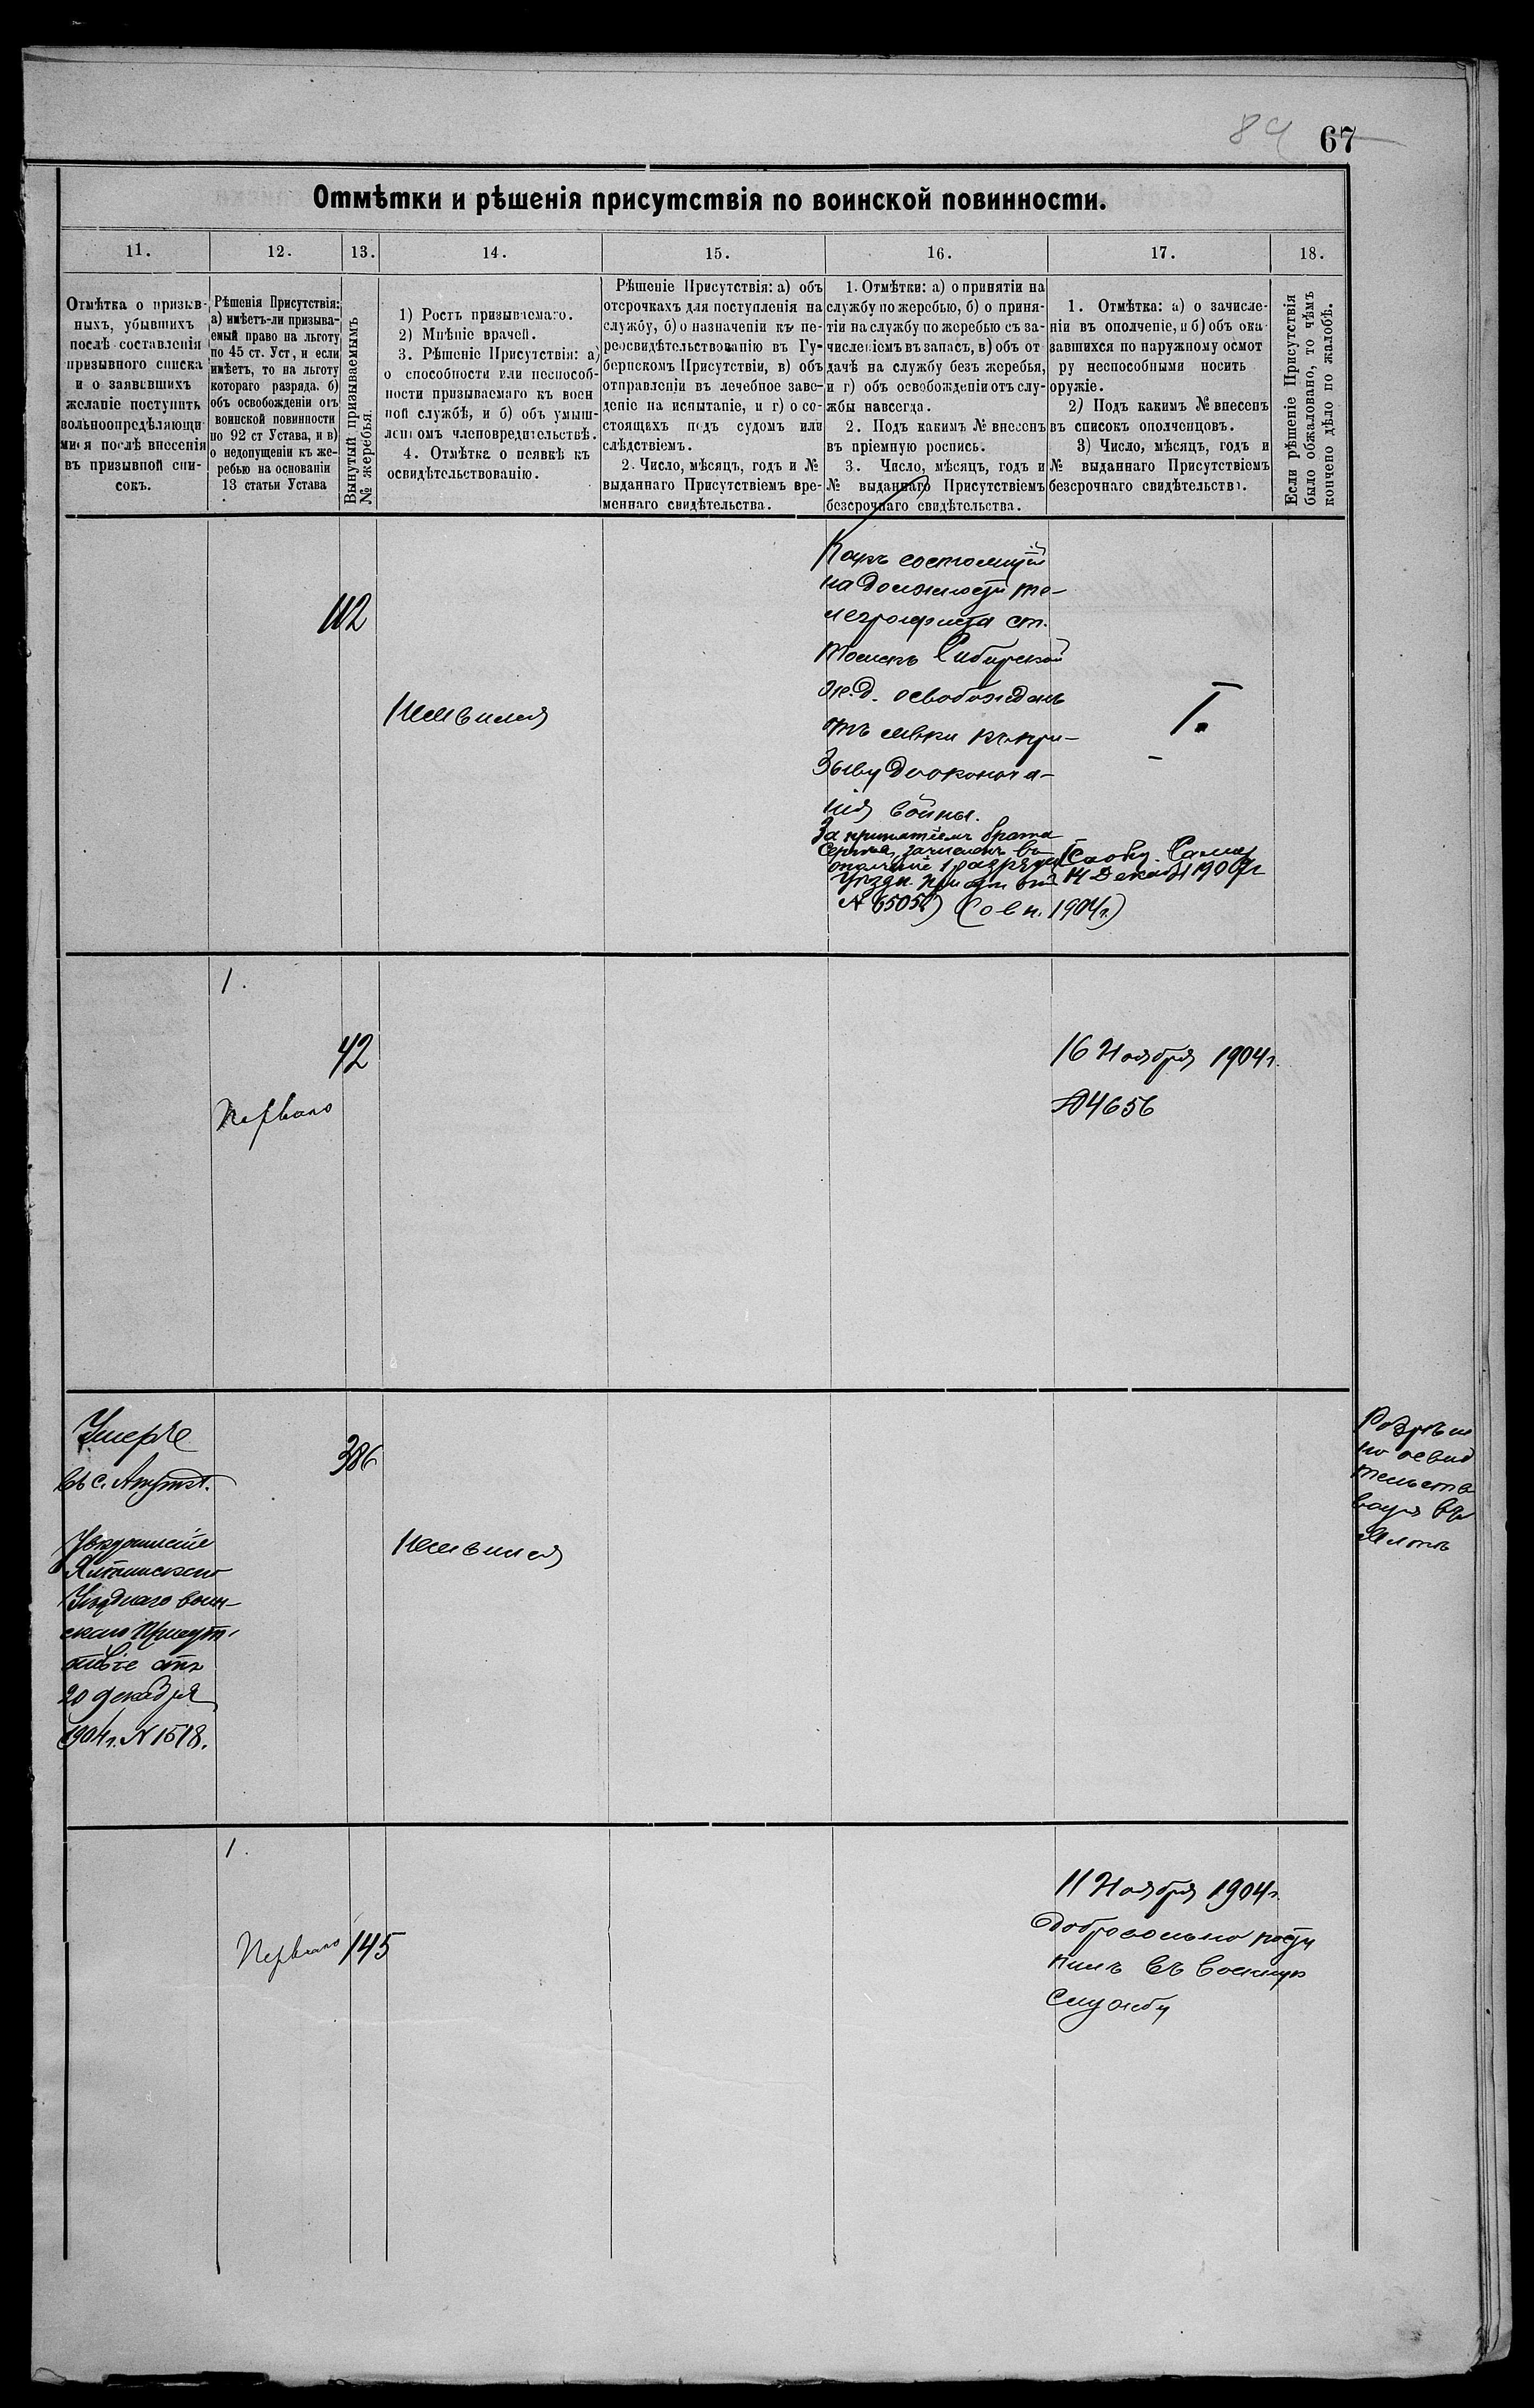 84 67
Отмѣтки и рѣшенія присутствія по воинской повинности.
11. 12. 13. 14. 15. 16. 17. 18.
Отмѣтка о призыв-
ныхъ, убывшихъ
послѣ составленія
призывного списка
и о заявившихъ
желаніе поступить
вольноопредѣляющи
мися послѣ внесенія
въ призывной спи-
сокъ.
Рѣшенія Присутствія:
а) имѣетъ-ли призыва-
емый право на льготу
по 45 ст. Уст, и если
имѣетъ, то на льготу
котораго разряда. б)
объ освобожденіи отъ
воинской повинности
по 92 ст Устава, и в)
о недопущеніи къ же-
ребью на основаніи
13 статьи Устава
Вынутый призываемымъ
№ жеребья.
1) Ростъ призываемаго.
2) Мнѣніе врачей.
3. Рѣшеніе Присутствія: а)
о способности или неспособ-
ности призываемаго къ воен
ной службѣ, и б) объ умыш-
леномъ членовредительствѣ.
4. Отмѣтка о неявкѣ къ
освидѣтельствованію.
Рѣшеніе Присутствія: а) объ
отсрочкахъ для поступленія на
службу, б) о назначеніи къ пе-
реосвидѣтельствованію въ Гу-
бернскомъ Присутствіи, в) объ
отправленіи въ лечебное заве-
деніе на испытаніе, и г) о со-
стоящихъ подъ судомъ или
слѣдствіемъ.
2. Число, мѣсяцъ, годъ и №
выданнаго Присутствіемъ вре-
меннаго свидѣтельства.
1. Отмѣтки: а) о принятіи на
службу по жеребью, б) о приня-
тіи на службу по жеребью съ за-
численіемъ въ запасъ, в) объ от
дачѣ на службу безъ жеребья,
и г) объ освобожденіи отъ слу-
жбы навсегда.
2. Подъ какимъ № внесенъ
въ пріемную роспись.
3. Число, мѣсяцъ, годъ и
№ выданнаго Присутствіемъ
безсрочнаго свидѣтельства.
1. Отмѣтка: а) о зачисле-
ніи въ ополченіе, и б) объ ока
завшихся по наружному осмот
ру неспособными носить
оружіе.
2) Подъ какимъ № внесенъ
въ списокъ ополченцовъ.
3) Число, мѣсяцъ, годъ и
№ выданнаго Присутствіемъ
безсрочнаго свидѣтельства.
Если рѣшеніе Присутствія
было обжаловано, то чѣмъ
кончено дѣло по жалобѣ.
112
Неявился
Какъ состоящій
на должности те-
леграфиста ст.
Томскъ Сибирской
ж.д. освобожденъ
отъ явки къ при-
зыву до оконча-
нія войны.
I.
За принятіемъ брата
Сергѣя, зачисленъ въ
ополченіе 1 разряда
Уѣздн. 14 Декаб 190
1904г.)
1.
42
Перваго
16 Ноября 1904г.
№4656
Умеръ
въ с.
386
Неявился
Увѣдомленіе
Уѣзднаго воин-
скаго Присут-
ствіе отъ
20 декабря
1904г. №1518.
1.
Перваго 145
11 Ноября 1904г.
Добровольно посту
пилъ въ военную
службу